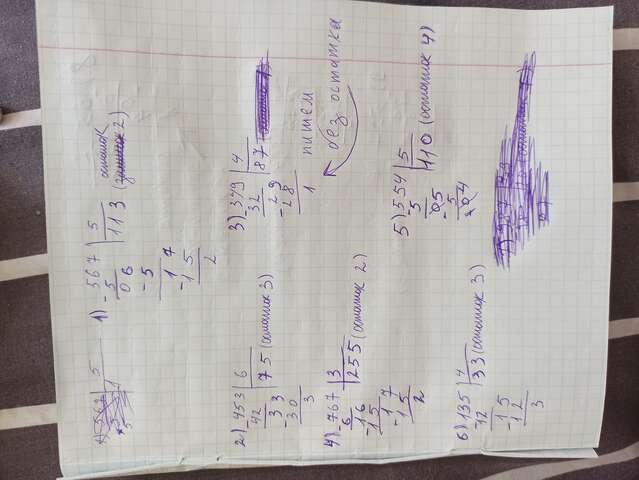 1) 567 | 5
- 5 113 (остаток 2)
06
- 5
17
- 15
2
2) 453 | 6
- 42 75 (остаток 3)
33
- 30
3
3) 379 | 4
32 87
29
- 28
1
пишем
без остатка
4) 767 | 3
- 6 255 (остаток 2)
16
- 15
17
- 15
2
5) 554 | 5
- 5 110 (остаток 4)
05
- 5
04
6) 135 | 4
12 33 (остаток 3)
15
- 12
3